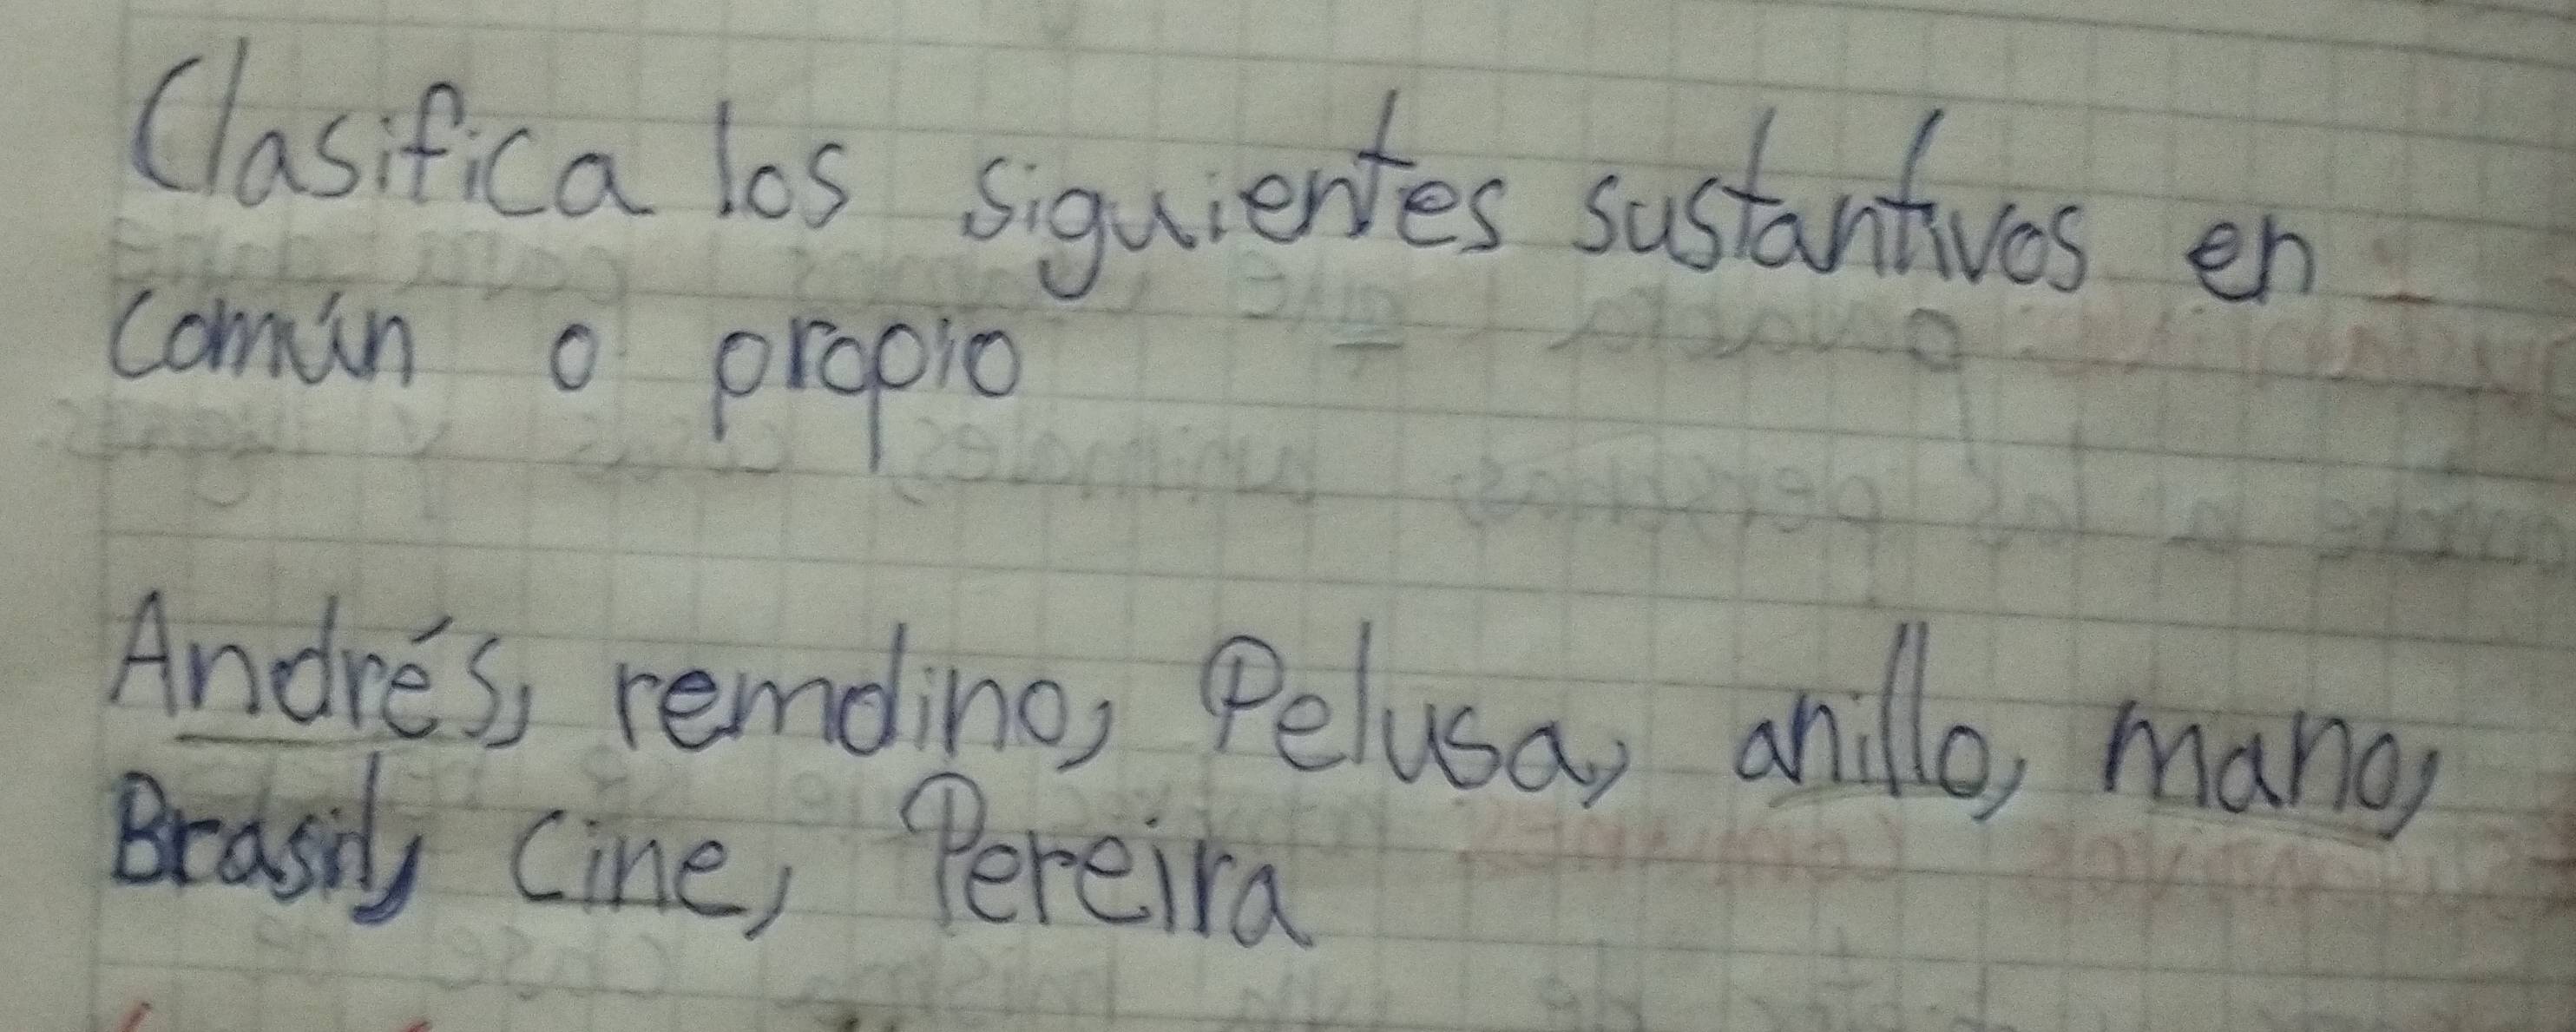 Clasifica los siguientes sustantivos en
común o propio
Andrés, remolino, Pelusa, anillo, mano,
Brasil, cine, Pereira